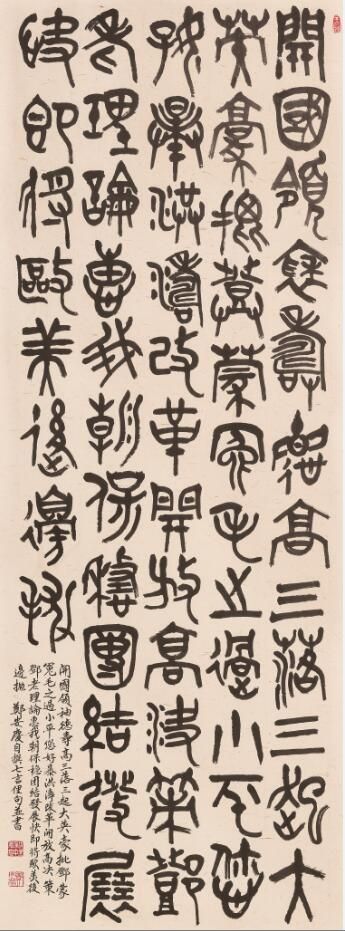 開國領袖德壽高三落三起大
英豪批鄧蒙冤毛之過小平您
好暴洪濤改革開放高決策鄧
老理論惠我朝保穩團結發展
快即將歐美後邊拋
開國領袖德壽高三落三起大英豪批鄧蒙
冤毛之過小平您好暴洪濤改革開放高決策
鄧老理論惠我朝保穩團結發展快即將歐美後
邊拋 鄭安慶自撰七言俚句並書